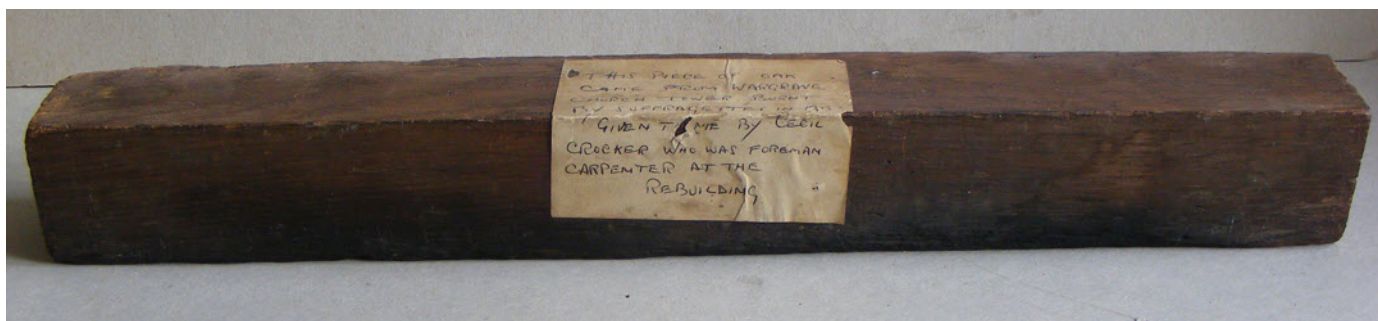 THIS PIECE OF OAK
CAME FROM WARGRAVE
CHURCH TOWER BURNT
BY SUFFRAGETTES IN
GIVEN TO ME BY CECIL
CROCKER WHO WAS FOREMAN
CARPENTER AT THE
REBUILDING